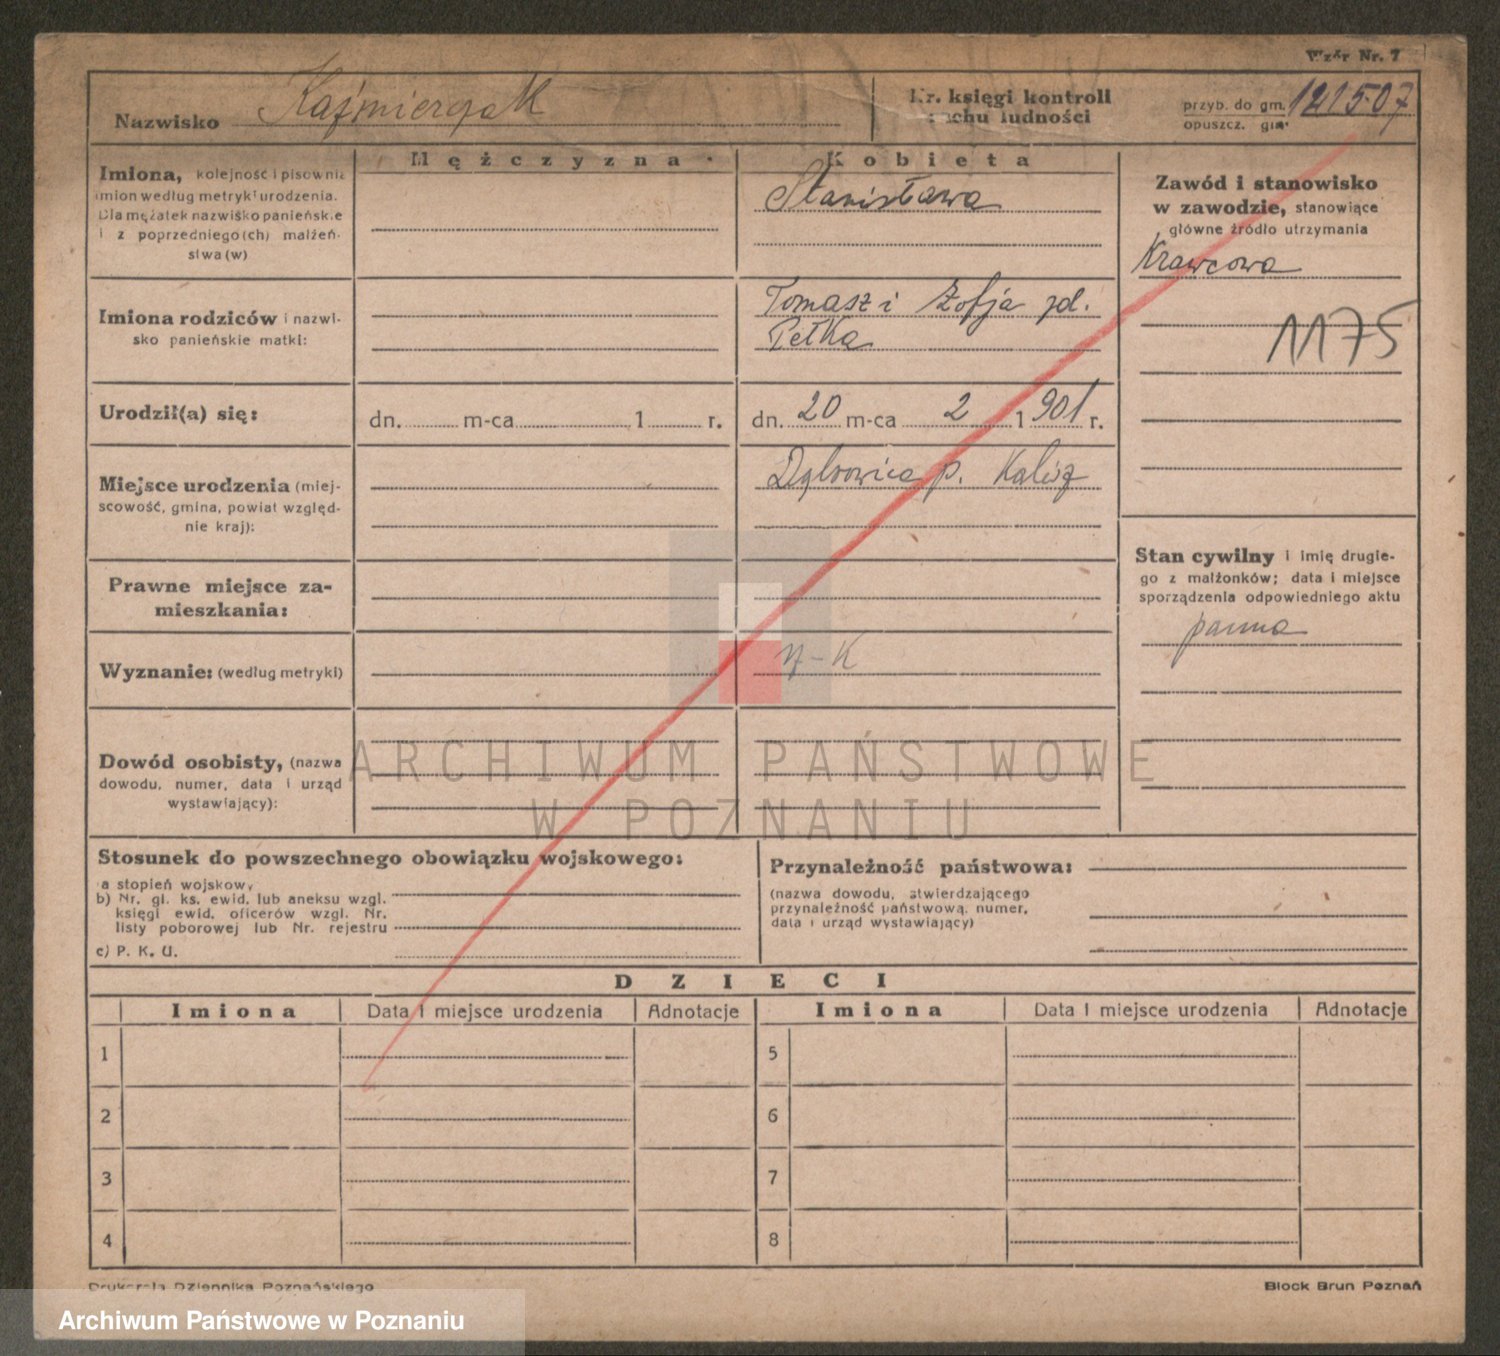 Wzór Nr. 7
Nazwisko Kaźmierczak
Nr. księgi kontroli
ruchu ludności
przyb. do gm. 121507
opuszcz. gm.
Mężczyzna
Kobieta
Imiona, kolejność i pisownia
imion według metryki urodzenia.
Dla mężatek nazwisko panieńskie
i z poprzedniego(ch) małżeń-
stwa(w)
Stanisława
Zawód i stanowisko
w zawodzie, stanowiące
główne źródło utrzymania
Krawcowa
1175
Imiona rodziców i nazwi-
sko panieńskie matki:
Tomasz i Zofja zd.
Pełka
Urodził(a) się:
dn. m-ca 1 r.
dn. 20 m-ca 2 1 901 r.
Miejsce urodzenia (miej-
scowość, gmina, powiat względ-
nie kraj):
Dąbrowica p. Kalisz
Stan cywilny i imię drugie-
go z małżonków; data i miejsce
sporządzenia odpowiedniego aktu
panna
Prawne miejsce za-
mieszkania:
Wyznanie: (według metryki)
r-K
Dowód osobisty, (nazwa
dowodu, numer, data i urząd
wystawiający):
ARCHIWUM PAŃSTWOWE
W POZNANIU
Stosunek do powszechnego obowiązku wojskowego:
a stopień wojskowy
b) Nr. gł. ks. ewid. lub aneksu wzgl.
księgi ewid. oficerów wzgl. Nr.
listy poborowej lub Nr. rejestru
c) P. K. U.
Przynależność państwowa:
(nazwa dowodu, stwierdzającego
przynależność państwową, numer,
data i urząd wystawiający)
DZIECI
Imiona Data i miejsce urodzenia Adnotacje Imiona Data i miejsce urodzenia Adnotacje
1 5
2 6
3 7
4 8
Drukarnia Dziennika Poznańskiego
Block Brun Poznań
Archiwum Państwowe w Poznaniu